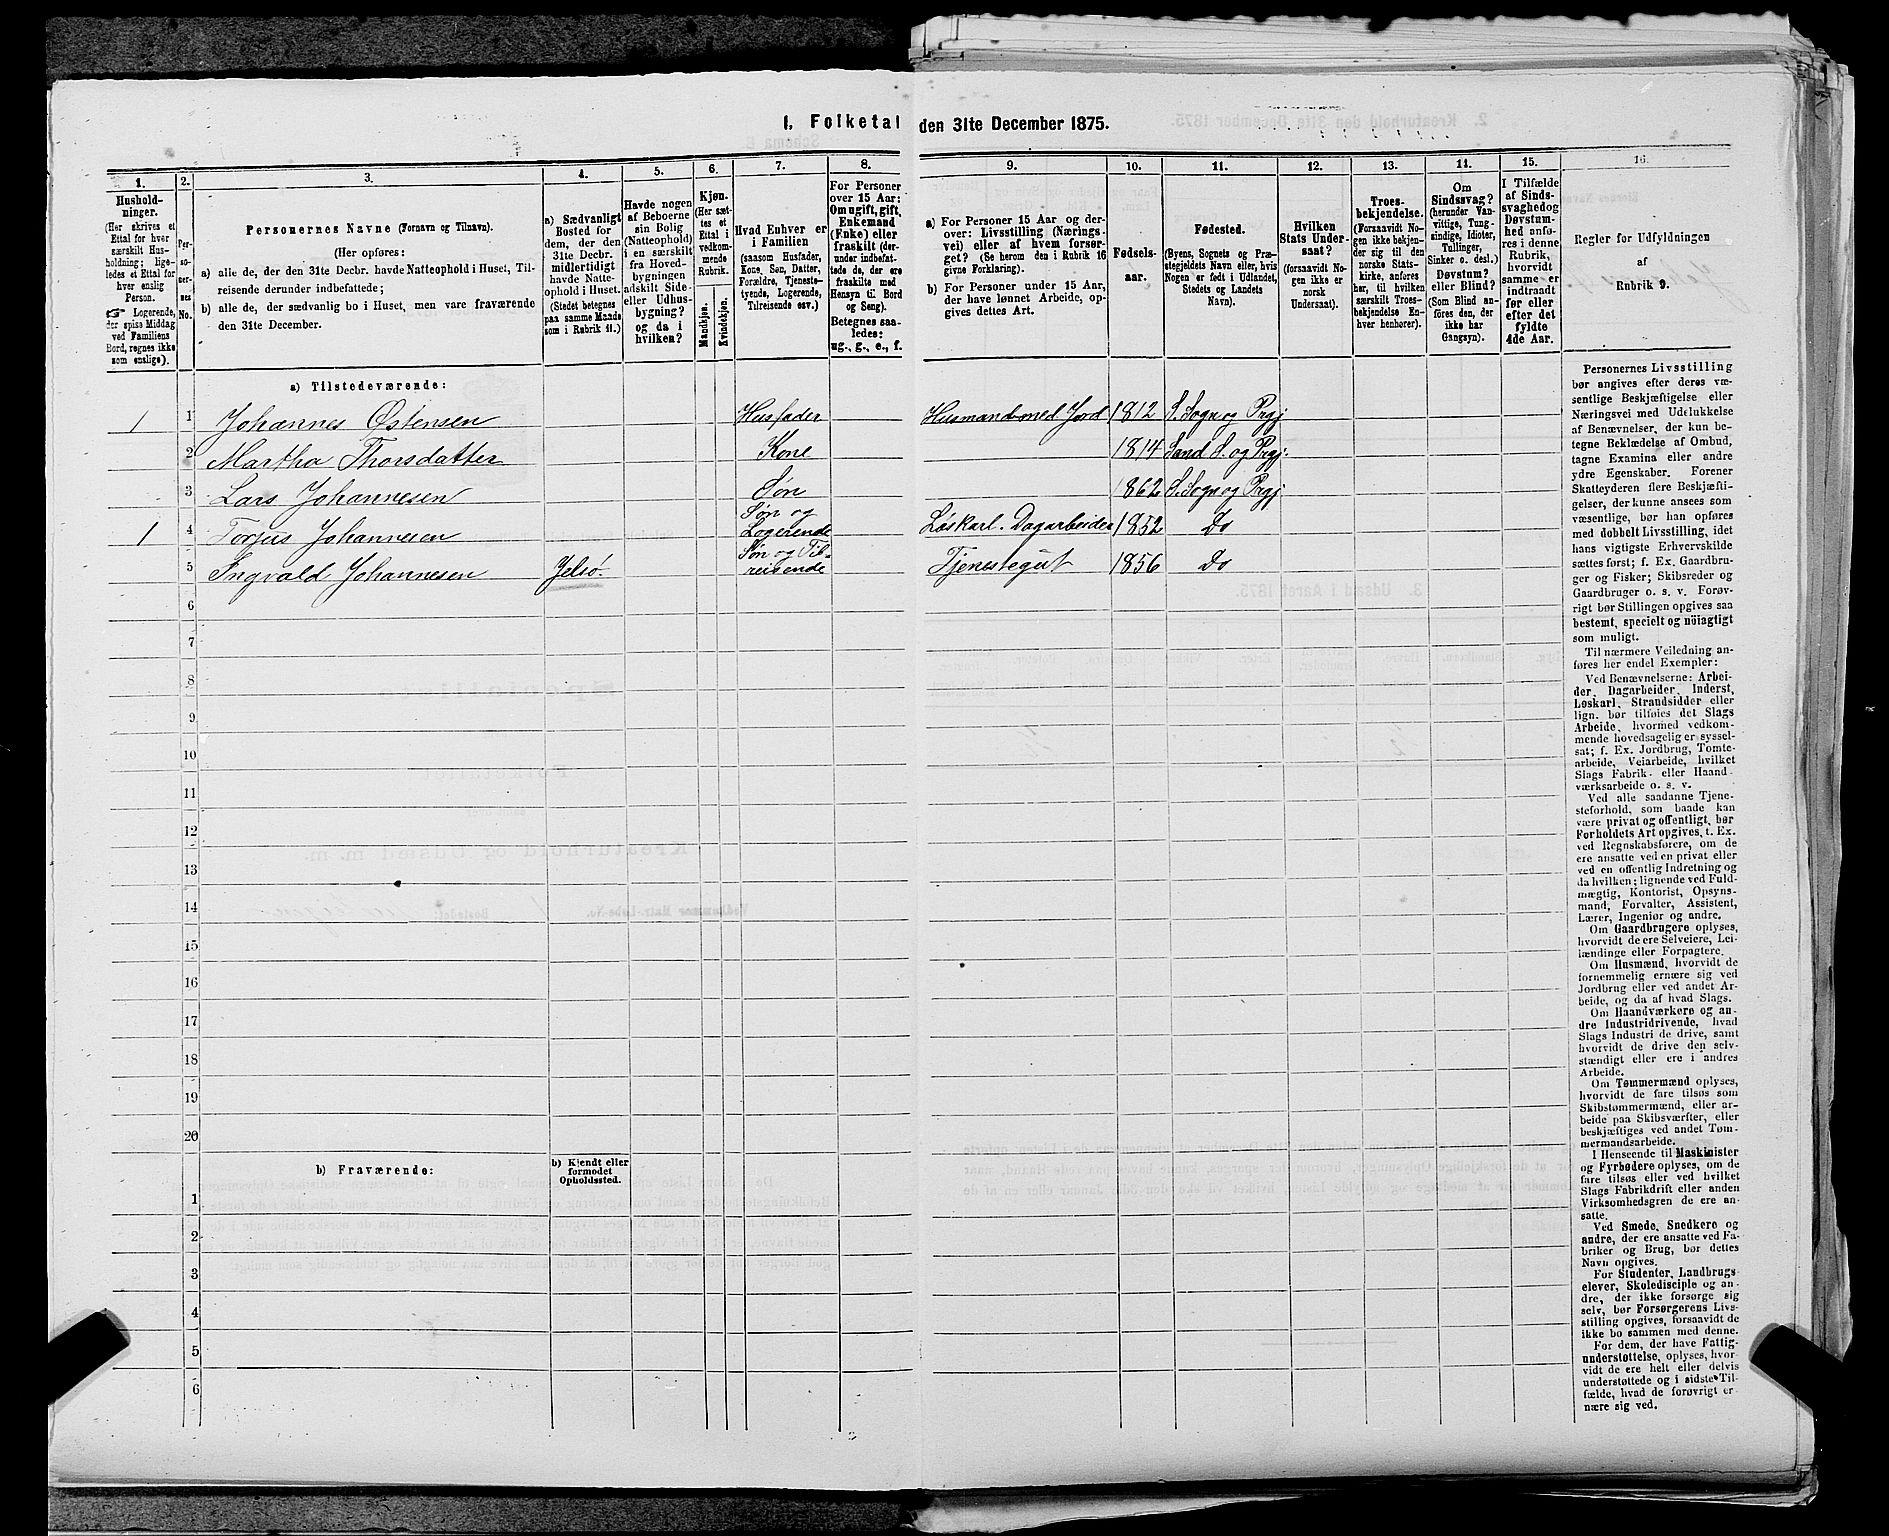 I. Folketal den 31te December 1875.
1.
Hushold-
ninger.
(Her skrives et
Ettal for hver
særskilt Hus-
holdning; lige-
ledes et Ettal for
hver enslig
Person.
☞ Logerende,
der spise Middag
ved Familiens
Bord, regnes ikke
som enslige).
2.
Per-
so-
ner-
nes
No.
3.
Personernes Navne (Fornavn og Tilnavn).
(Her opføres:
a) alle de, der den 31te Decbr. havde Natteophold i Huset, Til-
reisende derunder indbefattede;
b) alle de, der sædvanlig bo i Huset, men vare fraværende
den 31te December.
4.
a) Sædvanligt
Bosted for
dem, der den
31te Decbr.
midlertidigt
havde Natte-
ophold i Huset.
(Stedet betegnes
paa samme Maade
som i Rubrik 11.)
5.
Havde nogen
af Beboerne
sin Bolig
(Natteophold)
i en særskilt
fra Hoved-
bygningen
adskilt Side-
eller Udhus-
bygning?
og da i
hvilken?
6.
Kjøn.
(Her sæt-
tes et
Ettal i
vedkom-
mende
Rubrik.
Mandkjøn.
Kvindekjøn.
7.
Hvad Enhver er
i Familien
(saasom Husfader,
Kone, Søn, Datter,
Forældre, Tjeneste-
tyende, Logerende,
Tilreisende osv.)
8.
For Personer
over 15 Aar:
Om ugift, gift,
Enkemand
(Enke) eller
fraskilt (der-
under indbefat-
tede de, der ere
fraskilte med
Hensyn til Bord
og Seng).
Betegnes saa-
ledes:
ug., g., e., f.
9.
a) For Personer 15 Aar og der-
over: Livsstilling (Nærings-
vei) eller af hvem forsør-
get? (Se herom den i Rubrik 16
givne Forklaring).
b) For Personer under 15 Aar,
der have lønnet Arbeide, op-
gives dettes Art.
10.
Fødsels-
aar.
11.
Fødested.
(Byens, Sognets og Præ-
stegjeldets Navn eller, hvis
Nogen er født i Udlandet,
Stedets og Landets
Navn).
12.
Hvilken
Stats Under-
saat?
(forsaavidt No-
gen ikke er
norsk
Undersaat).
13.
Troes-
bekjendelse.
(Forsaavidt No-
gen ikke bekjen-
der sig til den
norske Stats-
kirke, anføres
her, til hvilken
særskilt Troes-
bekjendelse En-
hver henhører).
11.
Om
Sindssvag?
(herunder Van-
vittige, Tung-
sindige, Idioter,
Tullinger,
Sinker o. desl.)
Døvstum?
eller Blind?
(Som Blind an-
føres den, der
ikke har
Gangsyn).
15.
I Tilfælde
af Sinds-
svaghed og
Døvstum-
hed anfø-
res i denne
Rubrik,
hvorvidt
samme er
indtraadt
før eller
efter det
fyldte
4de Aar.
16.
Regler for Udfyldningen
af
Rubrik 9.
a) Tilstedeværende:
1 1 Johannes Østensen Husfader Husmand med Jord 1812 S. Sogn og Prgj
2 Martha Thorsdatter Kone 1814 Sand S. og Prgj.
3 Lars Johannesen Søn 1862 S. Sogn og Prgj
1 4 Torjus Johannesen Søn og Logerende Løskarl. Dagarbeider 1852 Do
5 Ingvald Johannesen Jelsø. Søn og Til-
reisende Tjenestegut 1856 Do
6
7
8
9
10
11
12
13
14
15
16
17
18
19
20
b) Fraværende:
b) Kjendt eller
formodet
Opholdssted.
1
2
3
4
5
6
Personernes Livsstilling
bør angives efter deres væ-
sentlige Beskjæftigelse eller
Næringsvei med Udelukkelse
af Benævnelser, der kun be-
tegne Beklædelse af Ombud,
tagne Examina eller andre
ydre Egenskaber. Forener
Skatteyderen flere Beskjæfti-
gelser, der kunne ansees som
væsentlige, bør han opføres
med dobbelt Livsstilling, idet
hans vigtigste Erhvervskilde
sættes først; f. Ex. Gaardbru-
ger og Fisker; Skibsreder og
Gaardbruger o. s. v. Forøv-
rigt bør Stillingen opgives saa
bestemt, specielt og nøiagtigt
som muligt.
Til nærmere Veiledning an-
føres her endel Exempler:
Ved Benævnelserne: Arbei-
der, Dagarbeider, Inderst,
Løskarl, Strandsidder eller
lign. bør tilføies det Slags
Arbeide, hvormed vedkom-
mende hovedsagelig er syssel-
sat; f. Ex. Jordbrug, Tomte-
arbeide, Veiarbeide, hvilket
Slags Fabrik- eller Haand-
værksarbeide o. s. v.
Ved alle saadanne Tjene-
steforhold, som baade kan
være privat og offentligt, bør
Forholdets Art opgives, t. Ex.
ved Regnskabsførere, om de
ere ansatte ved en privat eller
ved en offentlig Indretning og
da hvilken; lignende ved Fuld-
mægtig, Kontorist, Opsyns-
mand, Forvalter, Assistent,
Lærer, Ingeniør og andre.
Om Gaardbrugere oplyses,
hvorvidt de ere Selveiere, Lei-
lændinge eller Forpagtere.
Om Husmænd, hvorvidt de
fornemmelig ernære sig ved
Jordbrug eller ved andet Ar-
beide, og da af hvad Slags.
Om Haandværkere og an-
dre Industridrivende, hvad
Slags Industri de drive, samt
hvorvidt de drive den selv-
stændigt eller ere i andres
Arbeide.
Om Tømmermænd oplyses,
hvorvidt de fare tilsøs som
Skibstømmermænd, eller ar-
beide paa Skibsværfter, eller
beskjæftiges ved andet Tøm-
mermandsarbeide.
I Henseende til Maskinister
og Fyrbødere oplyses, om de
fare tilsøs eller ved hvilket
Slags Fabrikdrift eller anden
Virksomhedsgren de ere an-
satte.
Ved Smede, Snedkere og
andre, der ere ansatte ved Fa-
briker og Brug, bør dettes
Navn opgives.
For Studenter, Landbrugs-
elever, Skoledisciple og an-
dre, der ikke forsørge sig
selv, bør Forsørgerens Livs-
stilling opgives, forsaavidt de
ikke bo sammen med denne.
For dem, der have Fattig-
understøttelse, oplyses, hvor-
vidt de ere helt eller delvis
understøttede og i sidste Til-
fælde, hvad de forøvrigt er-
nære sig ved.